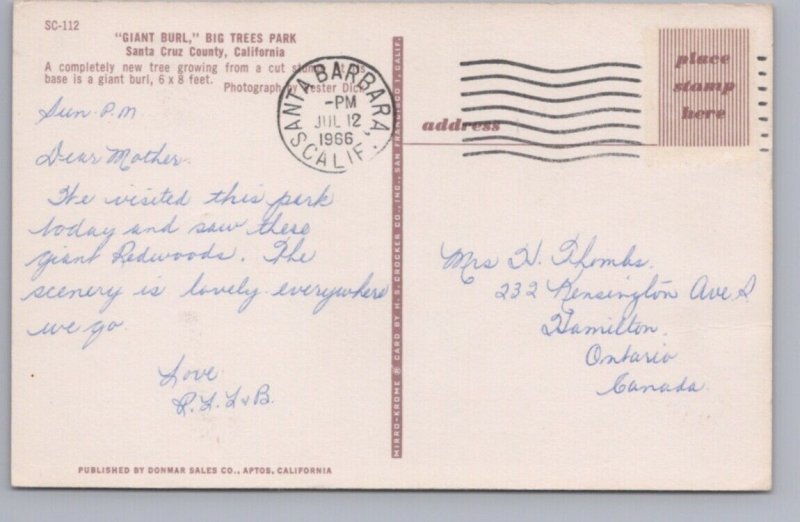 SC-112
"GIANT BURL," BIG TREES PARK
Santa Cruz County, California
A completely new tree growing from a cut
base is a giant burl, 6 x 8 feet.
Photograph by Lester Dick
SANTA BARBARA
-PM
JUL 12
1966
CALIF.
place
stamp
here
address
Sun P.M
Dear Mother
We visited this park
today and saw these
giant Redwoods. The
scenery is lovely everywhere
we go
Love
R.L.L & B.
Mrs H. Thombs.
232 Kensington Ave S
Hamilton.
Ontario
Canada
MIRRO-KROME ® CARD BY H. S. CROCKER CO., INC., SAN FRANCISCO 1, CALIF.
PUBLISHED BY DONMAR SALES CO., APTOS, CALIFORNIA